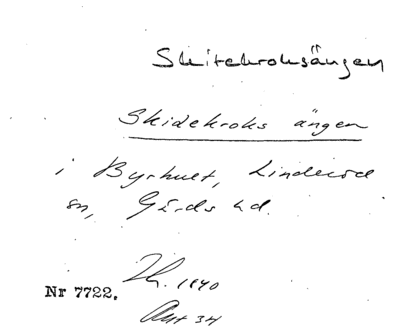 Skitekroksängen
Skidekroks ängen
i Byrhult, Linderöd
sn, Gärds hd.
Lh. 1840
Nr 7722.
Akt 34